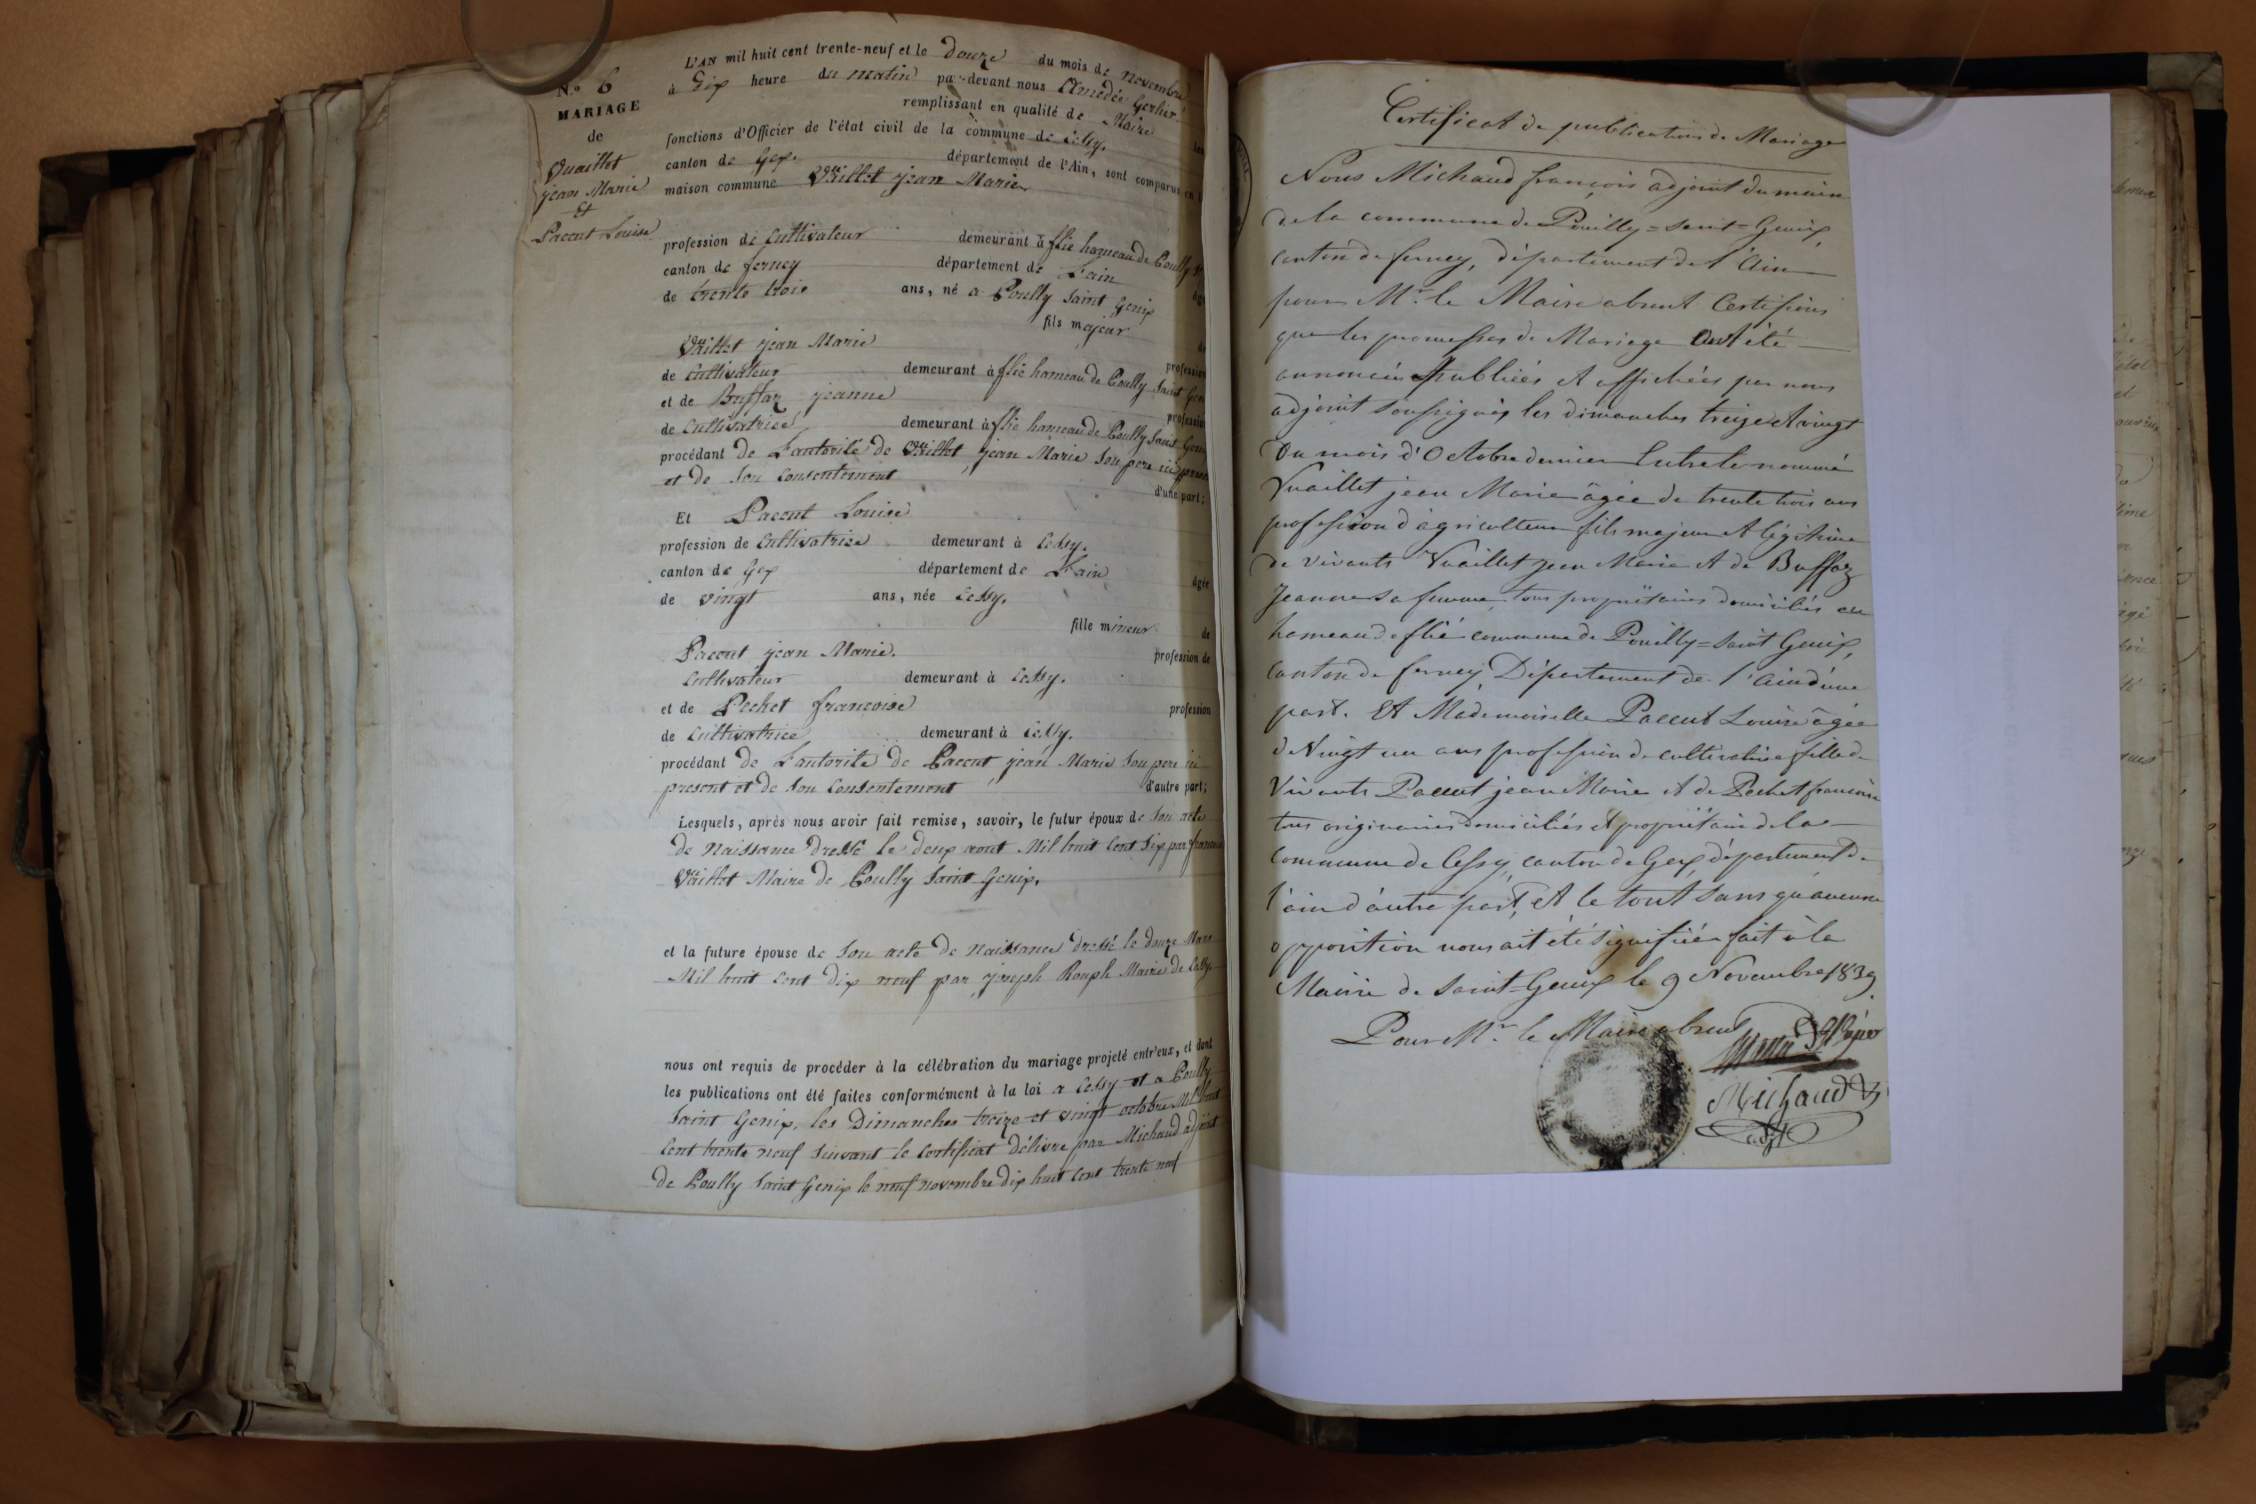 N.o 6
MARIAGE
de
Vuaillet
jean Marie
Et
Paccut Louise
L'AN mil huit cent trente-neuf et le Douze du mois de novembre
à Dix heure du matin par-devant nous Amedée Gerlier
remplissant en qualité de Maire les
fonctions d'Officier de l'état civil de la commune de Cessy.
canton de Gex. département de l'Ain, sont comparus en la
maison commune Vuaillet jean Marie
profession de Cultivateur demeurant à flie hameau de Pouilly St
canton de ferney département de L'ain âgé
de trente trois ans, né a Pouilly Saint Genix
fils majeur de
Vuaillet jean Marie profession
de Cultivateur demeurant à flie hameau de Pouilly Saint Gen
et de Buffaz jeanne profession
de Cultivatrice demeurant à flie hameau de Pouilly Saint Geni
procédant de L'autorité de Vuaillet jean Marie Son pere ici present
et de Son Consentement d'une part;
Et Paccut Louise
profession de Cultivatrice demeurant à Cessy.
canton de Gex département de L'ain âgée
de vingt ans, née Cessy.
fille mineur de
Paccut jean Marie. profession de
Cultivateur demeurant à Cessy.
et de Pechet françoise profession
de Cultivatrice demeurant à Cessy.
procédant de L'autorité de Paccut jean Marie Son pere ici
present et de Son Consentement d'autre part;
Lesquels, après nous avoir fait remise, savoir, le futur époux de Son acte
de Naissance dressé le deux aout Mil huit Cent Six par françois
Vuaillet Maire de Pouilly Saint Genix.
et la future épouse de Son acte de Naissance dressé le douze Mars
Mil huit Cent Dix neuf par joseph Rouph Maire de Cessy.
nous ont requis de procéder à la célébration du mariage projeté entr'eux, et dont
les publications ont été faites conformément à la loi a Cessy et a Pouilly
Saint Genix, les Dimanches treize et vingt octobre Mil huit
Cent trente neuf Suivant le Certificat délivré par Michaud adjoint
de Pouilly Saint Genix le neuf novembre dix huit Cent trente neuf
Certificat de publication de Mariage
Nous Michaud françois adjoint du maire
de la commune de Pouilly=Saint=Genix,
canton de ferney, département de l'Ain
pour Mr. le Maire absent Certifions
que les promesses de Mariage ont été
annoncées publiées et affichées par nous
adjoint soussignés les dimanches treize et vingt
du mois d'Octobre dernier Entre le nommé
Vuaillet jean Marie âgée de trente trois ans
profession d'agriculteur fils majeur et légitime
de vivants Vuaillet jean Marie et de Buffaz
Jeanne sa femme, tous propriétaires domiciliés au
hameau de flié commune de Pouilly=Saint Genix,
canton de ferney Département de l'Ain d'une
part. Et Mademoiselle Paccut Louise âgée
de Vingt un ans profession de cultivatrice fille de
vivants Paccut jean Marie et de Pechet francoise
tous originaires domiciliés et propriétaire de la
commune de Cessy, canton de Gex, département de
l'ain d'autre part, et le tout sans qu'aucune
opposition nous ait été signifiée fait à la
Mairie de Saint-Genix le 9 Novembre 1839
Pour Mr. le Maire absent
Michaud
adjt